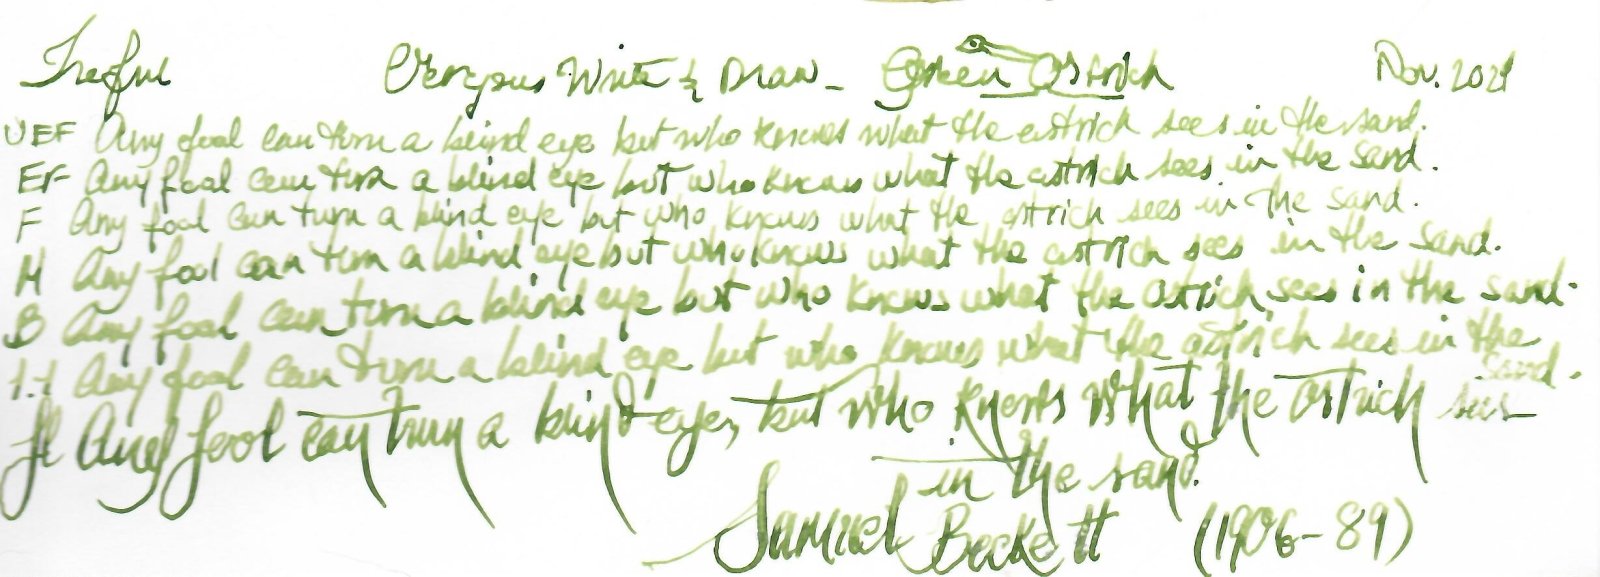 Treoful Gorgeous Write & Draw - Green Ostrich Nov. 2021
UEF Any fool can turn a blind eye but who knows what the ostrich sees in the sand.
EF Any fool can turn a blind eye but who knows what the ostrich sees in the sand.
F Any fool can turn a blind eye but who knows what the ostrich sees in the sand.
M Any fool can turn a blind eye but who knows what the ostrich sees in the sand.
B Any fool can turn a blind eye but who knows what the ostrich sees in the sand.
1.1 Any fool can turn a blind eye but who knows what the ostrich sees in the
sand.
fl Any fool can turn a blind eye, but who knows what the ostrich sees
in the sand.
Samuel Beckett (1906-89)